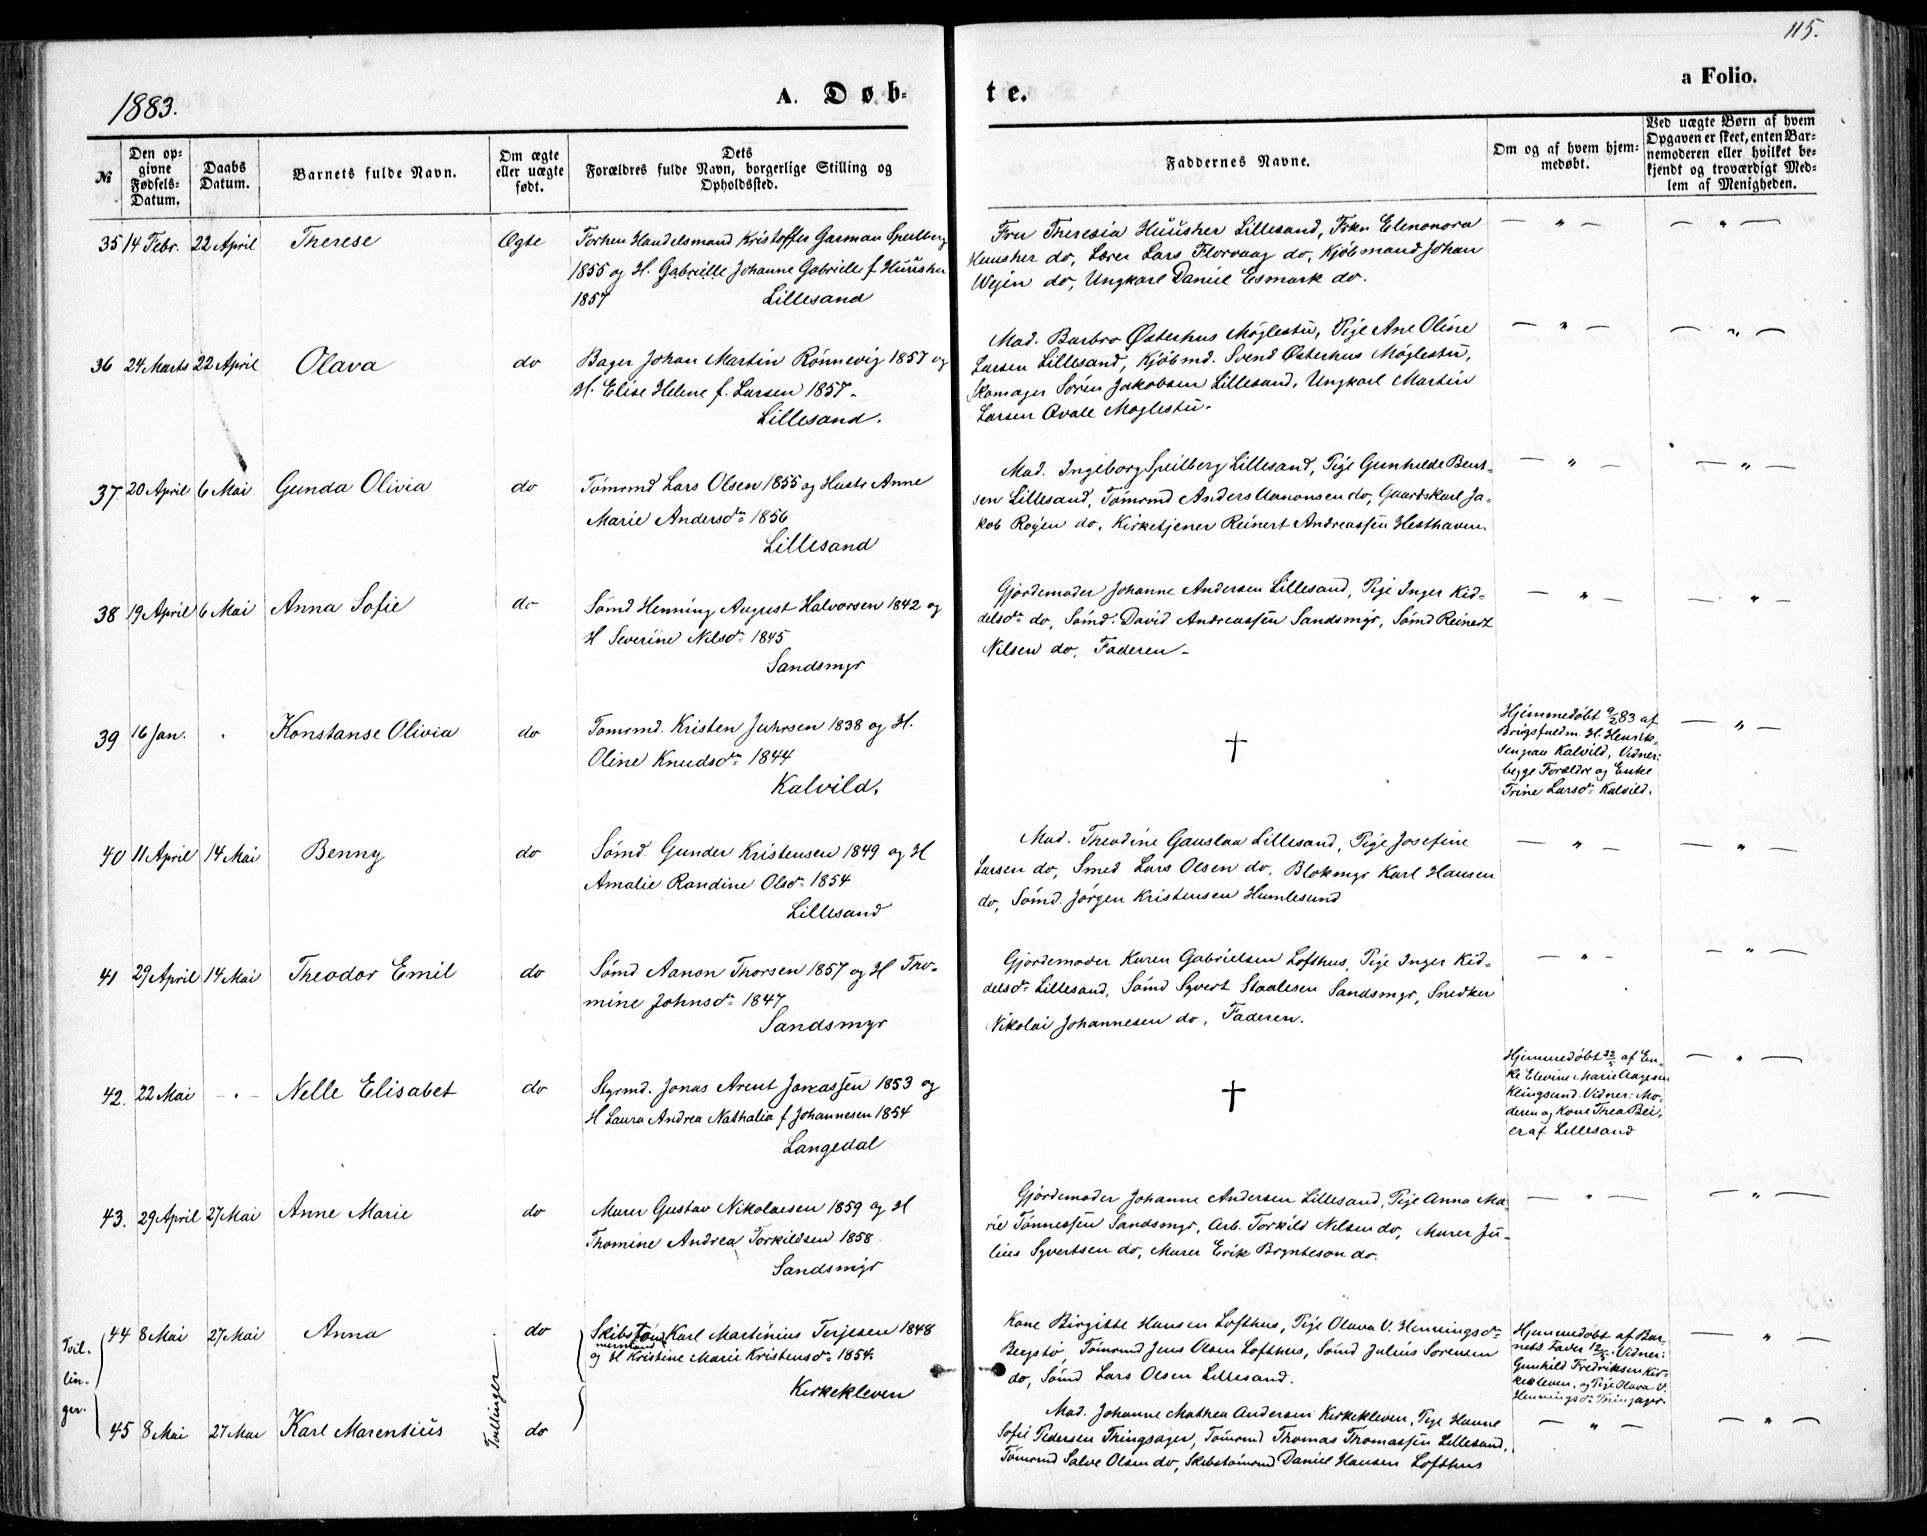 115.
1883.
A. Døb-
te.
a Folio.
№
Den op-
givne
Fødsels-
Datum.
Daabs
Datum.
Barnets fulde Navn.
Om ægte
eller uægte
født.
Dets
Forældres fulde Navn, borgerlige Stilling og
Opholdssted.
Faddernes Navne.
Om og af hvem hjem-
medøbt.
Ved uægte Børn af hvem
Opgaven er skeet, enten Bar-
nemoderen eller hvilket be-
kjendt og troværdigt Med-
lem af Menigheden.
35 14 Febr. 22 April Therese Ægte
Handelsmand Kristoffer Garman Speilberg
1855 og H. Gabrielle Johanne Gabrielle f Huusher
1857 Lillesand
Fru Theresia Huusher Lillesand, Frkn Elenonora
Huusher do, Lærer Lars Florvaag do, Kjøbmand Johan
Wejin do, Ungkarl Daniel Esmark do.
— " — — " —
36 24 Marts 22 April Olava do
Bager Johan Martin Rönnevig 1857 og
H. Elise Helene f. Larsen 1857-
Lillesand.
Mad. Barbro Østerhus Møglestu, Pige Ane Oline
Larsen Lillesand, Kjöbmd. Svend Østerhus Møglestu,
Skomager Sören Jakobsen Lillesand, Ungkarl Martin
Larsen Ovale Moglestu-
— " — — " —
37 20 April 6 Mai Gunda Olivia do
Tömrmd Lars Olsen 1855 og Hustr Anne
Marie Andersdr 1856
Lillesand
Mad. Ingeborg Speilberg Lillesand, Pige Gunhilde Bent-
sen Lillesand, Tömrmd Anders Aanonsen do, Gaardskarl Ja-
kob Rogen do, Kirketjener Reinert Andreassen Hesthaven.
— " — — " —
38 19 April 6 Mai Anna Sofie do
Sömd Henning August Halvorsen 1842 og
H Severine Nilsdr 1845
Sandsmyr
Gjordemoder Johanne Andersen Lillesand, Pige Inger Kid-
delsdr do, Sömd. David Andreassen Sandsmyr, Sömd Reinert
Nilsen do, Faderen-
— " — — " —
39 16 Jan. " Konstanse Olivia do
Tomrmd. Kristen Juhrsen 1838 og H.
Oline Knudsdr 1844
Kalvild.
†
Hjemmedöbt 9/2 83 af
Brugsfuldm. H. Henrik-
sen paa Kalvild, Vidner:
begge Forældre og Enke
Trine Larsdr Kalvild.
— " —
40 11 April 14 Mai Benny do
Sömd. Gunder Kristensen 1849 og H
Amalie Randine Olsdr 1854
Lillesand
Mad. Theodine Gauslaa Lillesand, Pige Josefine
Larsen do, Smed Lars Olsen do, Blokmgr Karl Hansen
do, Sömd. Jörgen Kristensen Humlesund
— " — — " —
41 29 April 14 Mai Theodor Emil do
Sömd Aanon Thorsen 1857 og H Tho-
mine Johnsdr 1847
Sandsmyr
Gjordemoder Karen Gabrielsen Lofthus, Pige Inger Kid-
delsdr Lillesand, Sömd Syvert Staalesen Sandsmyr, Snedker
Nikolai Johannesen do, Faderen.
— " — — " —
42. 22 Mai — " — Nelle Elisabet do
Styrmd. Jonas Arent Jonassen 1853 og
H Laura Andrea Nathalia f Johannesen 1854
Langedal
†
Hjemmedöbt 22/5 af En-
ke Elevine Marie Aagesen
Klingsund. Vidner: Mo-
deren og Kone Thea Bei-
er af Lillesand
— " —
43. 29 April 27 Mai Anne Marie do
Murer Gustav Nikolaisen 1859 og H
Thomine Andrea Torkildsen 1858
Sandsmyr
Gjordemoder Johanne Andersen Lillesand, Pige Anna Ma-
rie Tönnessen Sandsmyr, Arb. Torkild Nilsen do, Murer Ju-
lius Syvertsen do, Murer Erik Brynteson do.
— " — — " —
Tvil-
lin-
ger.
44 8 Mai 27 Mai Anna do
Skibstöm Karl Martinius Terjesen 1848
mermand
og H Kristine Marie Kristensdr 1854.
Kirkekleven
Kone Birgitte Hansen Lofthus, Pige Olava V. Henningsdr
Bergstö, Tömrmd Jens Olsen Lofthus, Sömd Julius Sorensen
do, Sömd Lars Olsen Lillesand.
Hjemmedöbt af Bar-
nets Fader 12/5. Vidner:
Gunhild Fredriksen Kir-
kekleven, og Pige Olava V.
Henningsdr Tingsager.
— " —
45 8 Mai 27 Mai Karl Marentius Tvillinger do
Mad. Johanne Mathea Andersen Kirkekleven, Pige Hanne
Sofie Pedersen Thingsager, Tömrmd Thomas Thomassen Lillesand,
Tömrmd Salve Olsen do, Skibstömrmd Daniel Hansen Lofthus
— " — — " —